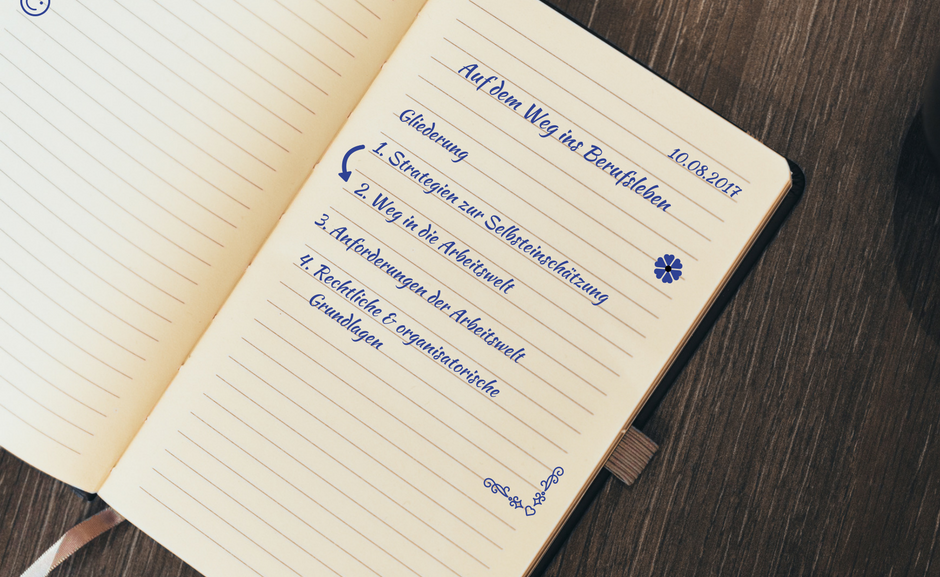 10.08.2017
Auf dem Weg ins Berufsleben
Gliederung
1. Strategien zur Selbsteinschätzung
2. Weg in die Arbeitswelt
3. Anforderungen der Arbeitswelt
4. Rechtliche & organisatorische
Grundlagen